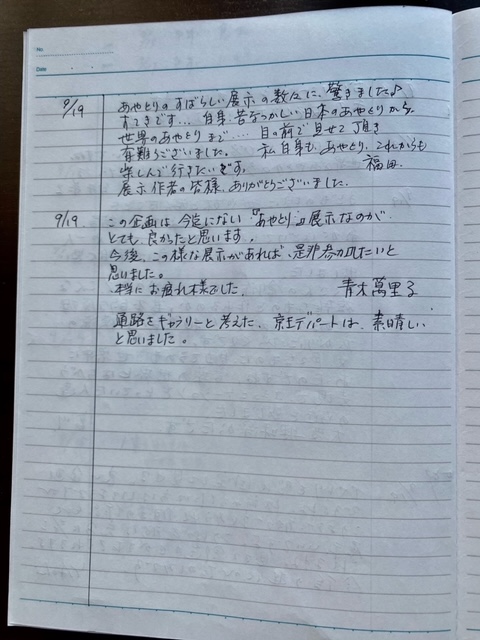 No.
Date
9/19 あやとりのすばらしい展示の数々に、驚きました♪
すてきです… 自身、昔なつかしい日本のあやとりから、
世界のあやとりまで… 目の前で見せて頂き
有難うございました。 私自身も、あやとり、これからも
楽しんで行きたいです。 福田
展示作者の皆様、ありがとうございました。
9/19 この企画は今迄にない『あやとり』展示なのが
とても良かったと思います。
今後、この様な展示があれば、是非参加したいと
思いました。
本当にお疲れ様でした。 青木萬里子
通路をギャラリーと考えた、京王デパートは、素晴しい
と思いました。